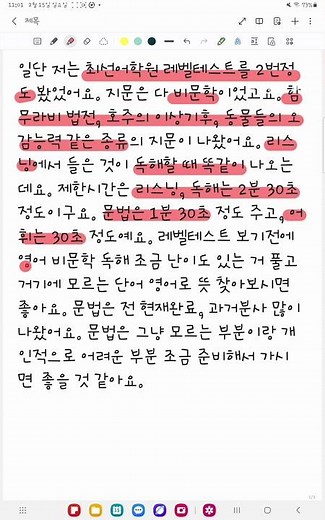 11:01 3월 15일 일요일
73%
제목
일단 저는 최선어학원 레벨테스트를 2번정
도 봤었어요. 지문은 다 비문학이었고요. 함
무라비 법전, 호주의 이상기후, 동물들의 오
감능력 같은 종류의 지문이 나왔어요. 리스
닝에서 들은 것이 독해할 때 똑같이 나오는
데요. 제한시간은 리스닝, 독해는 2분 30초
정도이구요. 문법은 1분 30초 정도 주고, 어
휘는 30초 정도예요. 레벨테스트 보기전에
영어 비문학 독해 조금 난이도 있는 거 풀고
거기에 모르는 단어 영어로 뜻 찾아보시면
좋아요. 문법은 전 현재완료, 과거분사 많이
나왔어요. 문법은 그냥 모르는 부분이랑 개
인적으로 어려운 부분 조금 준비해서 가시
면 좋을 것 같아요.